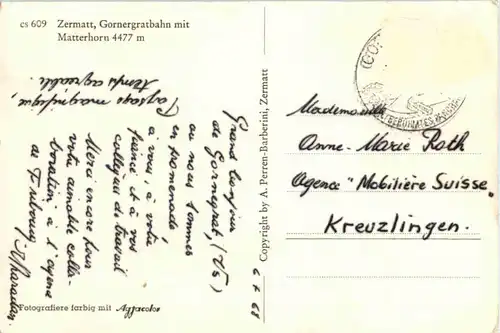 cs 609 Zermatt, Gornergratbahn mit
Matterhorn 4477 m
Paysage magnifique,
temps agréable.
Grand bonjour
de Gornegrat, (Vs)
où nous sommes
en promenade
à vous, à votre
fiancé et à vos
collègues de travail
Merci encore pour
votre aimable colla-
boration à l'agence
de Fribourg
6 7 68
Fotografiere farbig mit Agfacolor
Copyright by A. Perren-Barberini, Zermatt
Mademoiselle
Anne-Marie Roth
Agence "Mobilière Suisse"
Kreuzlingen.